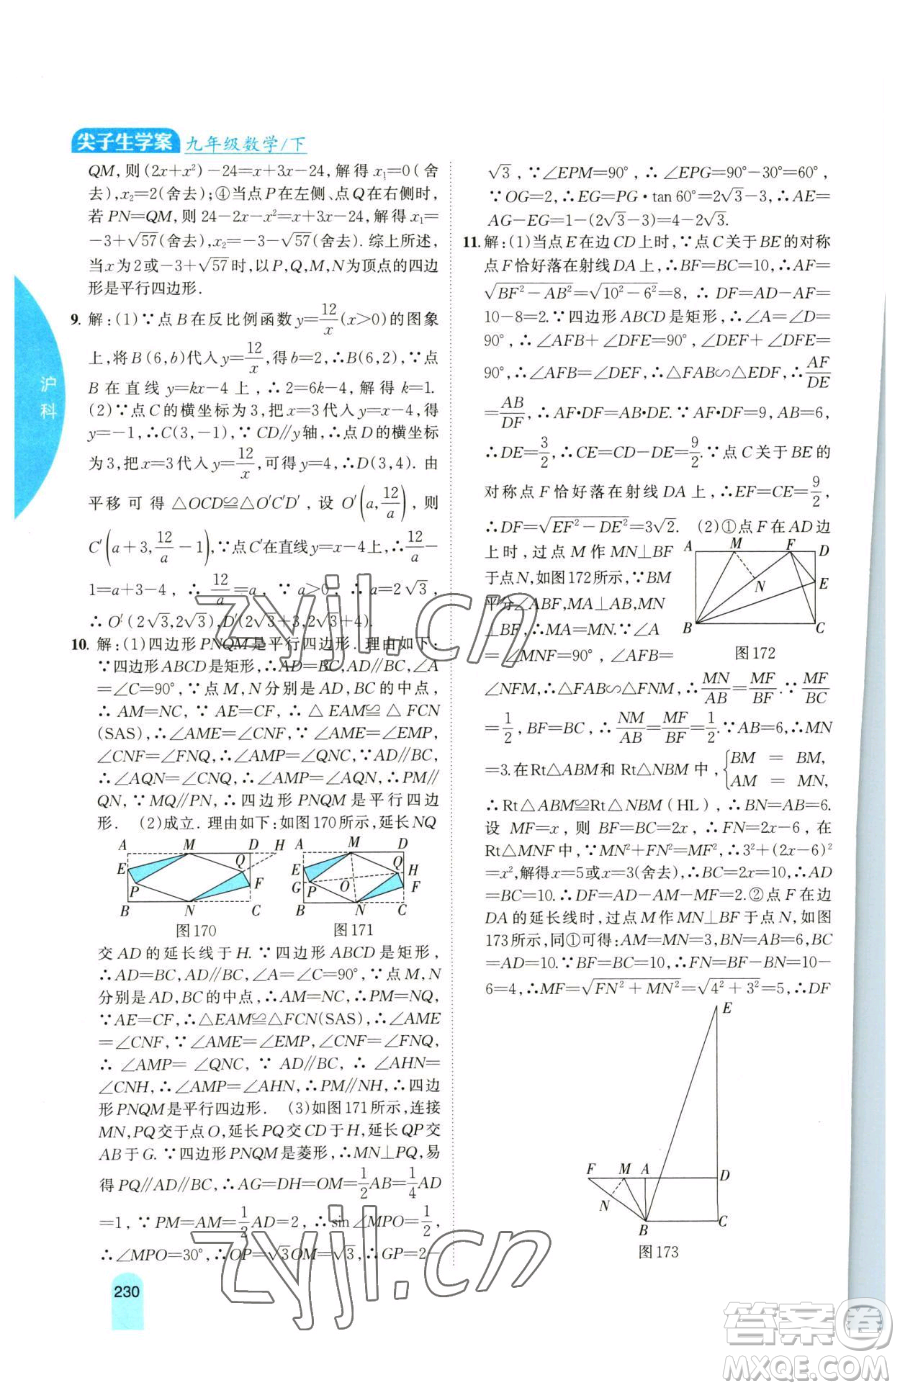 尖子生学案 九年级数学/下
QM,则(2x+x²)-24=x+3x-24,解得x₁=0(舍
去),x₂=2(舍去);④当点P在左侧、点Q在右侧时,
若PN=QM,则24-2x-x²=x+3x-24,解得x₁=
-3+√57(舍去),x₂=-3-√57(舍去).综上所述,
当x为2或-3+√57时,以P,Q,M,N为顶点的四边
形是平行四边形.
9. 解:(1)∵点B在反比例函数y=12/x(x>0)的图象
上,将B(6,b)代入y=12/x,得b=2,∴B(6,2),∵点
B在直线y=kx-4上,∴2=6k-4,解得k=1.
(2)∵点C的横坐标为3,把x=3代入y=x-4,得
y=-1,∴C(3,-1),∵CD//y轴,∴点D的横坐标
为3,把x=3代入y=12/x,可得y=4,∴D(3,4).由
平移可得△OCD≌△O′C′D′,设O′(a,12/a),则
C′(a+3,12/a-1),∵点C在直线y=x-4上,∴12/a-
1=a+3-4,∴12/a=a,∵a>0,∴a=2√3,
∴O′(2√3,2√3),D′(2√3+3,2√3+4).
10. 解:(1)四边形PNQM是平行四边形.理由如下:
∵四边形ABCD是矩形,∴AD=BC,AD//BC,∠A
=∠C=90°,∵点M,N分别是AD,BC的中点,
∴AM=NC,∵AE=CF,∴△EAM≌△FCN
(SAS),∴∠AME=∠CNF,∵∠AME=∠EMP,
∠CNF=∠FNQ,∴∠AMP=∠QNC,∵AD//BC,
∴∠AQN=∠CNQ,∴∠AMP=∠AQN,∴PM//
QN,∵MQ//PN,∴四边形PNQM是平行四边
形. (2)成立.理由如下:如图170所示,延长NQ
A M D H
E Q
P F
B N C
图170
A M D
E Q H
G P O F
B N C
图171
交AD的延长线于H.∵四边形ABCD是矩形,
∴AD=BC,AD//BC,∠A=∠C=90°,∵点M,N
分别是AD,BC的中点,∴AM=NC,∵PM=NQ,
∵AE=CF,∴△EAM≌△FCN(SAS),∴∠AME
=∠CNF,∵∠AME=∠EMP,∠CNF=∠FNQ,
∴∠AMP=∠QNC,∵AD//BC,∴∠AHN=
∠CNH,∴∠AMP=∠AHN,∴PM//NH,∴四边
形PNQM是平行四边形. (3)如图171所示,连接
MN,PQ交于点O,延长PQ交CD于H,延长QP交
AB于G.∵四边形PNQM是菱形,∴MN⊥PQ,易
得PQ//AD//BC,∴AG=DH=OM=1/2AB=1/4AD
=1,∵PM=AM=1/2AD=2,∴sin∠MPO=1/2,
∴∠MPO=30°,∴OP=√3OM=√3,∴GP=2-
√3,∵∠EPM=90°,∴∠EPG=90°-30°=60°,
∵OG=2,∴EG=PG·tan60°=2√3-3,∴AE=
AG-EG=1-(2√3-3)=4-2√3.
11. 解:(1)当点E在边CD上时,∵点C关于BE的对称
点F恰好落在射线DA上,∴BF=BC=10,∴AF=
√(BF²-AB²)=√(10²-6²)=8,∴DF=AD-AF=
10-8=2.∵四边形ABCD是矩形,∴∠A=∠D=
90°,∴∠AFB+∠DFE=90°,∵∠AFB+∠ABF=
90°,∴∠ABF=∠DEF,∴△FAB∽△EDF,∴AF/DE
=AB/DF,∴AF·DF=AB·DE,∵AF·DF=9,AB=6,
∴DE=3/2,∴CE=CD-DE=9/2.∵点C关于BE的
对称点F恰好落在射线DA上,∴EF=CE=9/2,
∴DF=√(EF²-DE²)=3√2. (2)①点F在AD边
上时,过点M作MN⊥BF
于点N,如图172所示,∵BM
平分∠ABF,MA⊥AB,MN
⊥BF,∴MA=MN.∵∠A
=∠MNF=90°,∠AFB=
A M F D
N E
B C
图172
∠NFM,∴△FAB∽△FNM,∴MN/AB=MF/BF.∵MF/BC
=1/2,BF=BC,∴NM/AB=MF/BF=1/2.∵AB=6,∴MN
=3.在Rt△ABM和Rt△NBM中,{BM=BM, AM=MN,
∴Rt△ABM≌Rt△NBM(HL),∴BN=AB=6.
设MF=x,则BF=BC=2x,∴FN=2x-6.在
Rt△MNF中,∵FM²=MN²+FN²,∴3²+(2x-6)²=
x²,解得x=5或x=3(舍去),∴BC=2x=10,∴AD=
BC=10.∴DF=AD-AM-MF=2.②点F在边
DA的延长线时,过点M作MN⊥BF于点N,如图
173所示,同①可得:AM=MN=3,AB=BN=6,BC
=AD=10.∵BF=BC=10,∴FN=BF-BN=10-
6=4,∴MF=√(FN²+MN²)=√(4²+3²)=5,∴DF
E
F M A D
N
B C
图173
沪科
230
zyjl.cn
zyjl.cn
答案卷
MXQE.COM